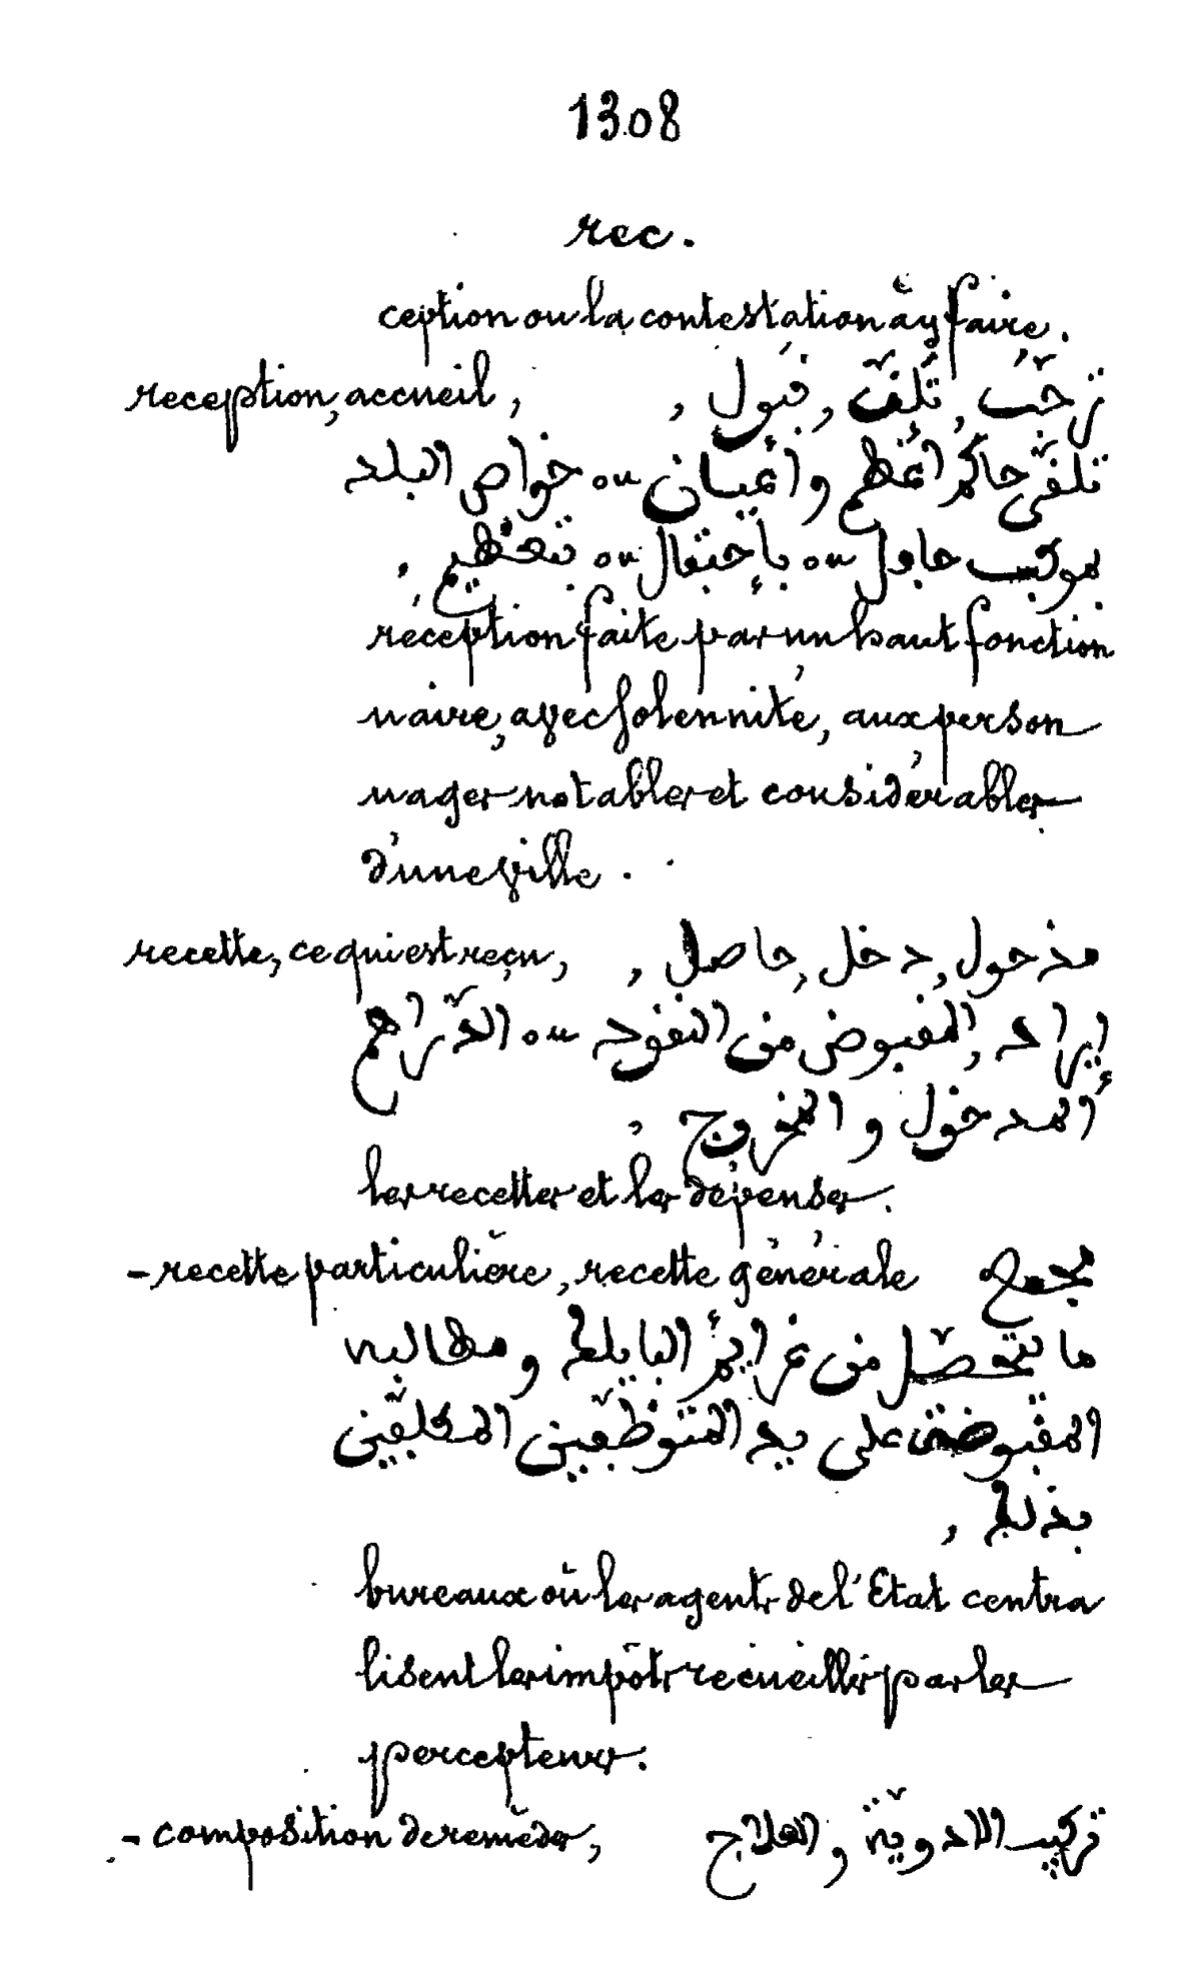 1308
rec.
ception ou la contestation à y faire.
reception, accueil, ترحّب, تلقّى, قبول,
تلقّى حاكم أعظم وأعيان ou خواص البلد
بموكب حافل ou بإحتفال ou بتعظيم,
réception faite par un haut fonction
naire, avec solennité, aux person
nages notables et considérables
d'une ville.
recette, ce qui est reçu, مدخول, دخل, حاصل,
إيراد, المقبوض من النقود ou الدّراهم
المدخول و المخروج,
les recettes et les dépenses.
- recette particulière, recette générale مجمع
ما يتحصّل من غرايم البايلك و مطالبه
المقبوضة على يد المتوظّفين المكلّفين
بذلك,
bureaux où les agents de l'Etat centra
lisent les impôts recueillis par les
percepteurs.
- composition de remèdes, تركيب الادويّة و العلاج